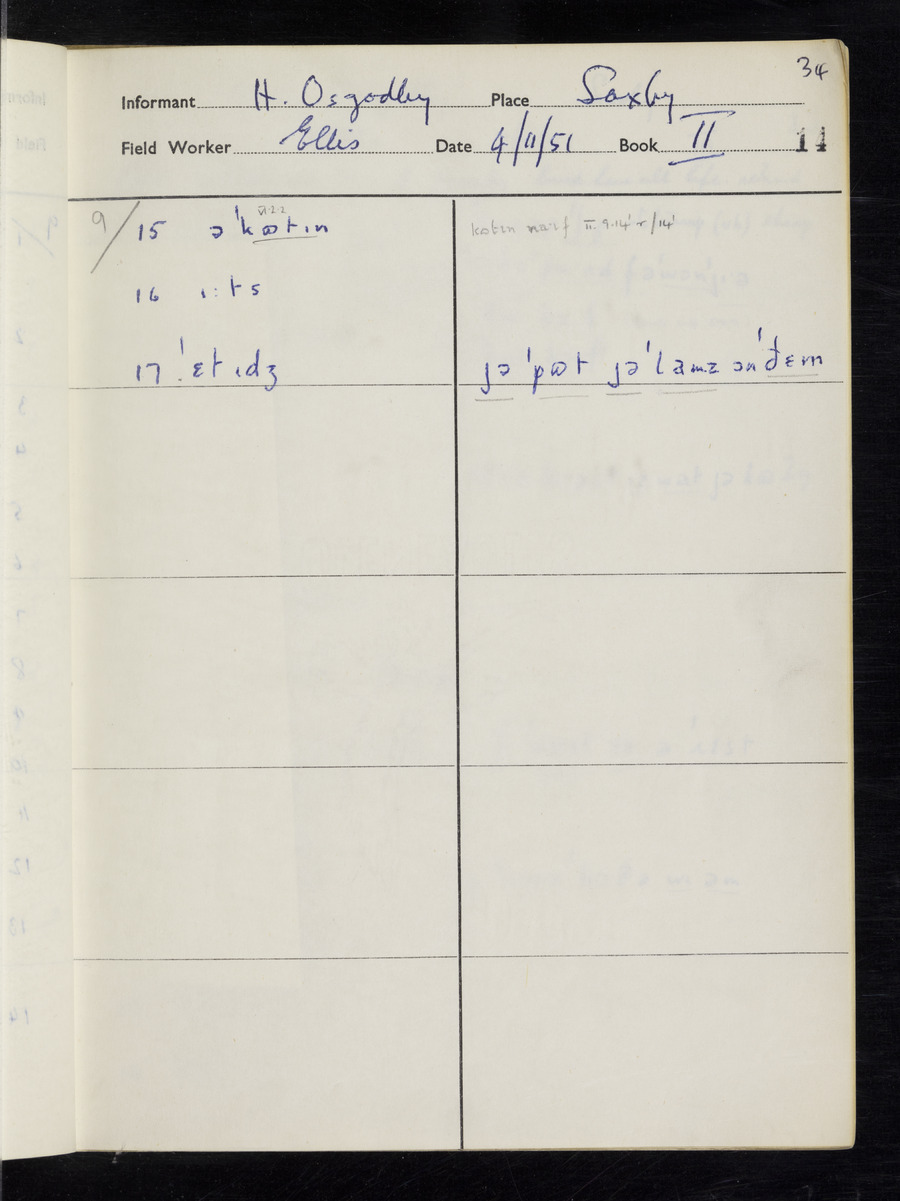 34
Informant H. Osgodby Place Saxby
Field Worker Ellis Date 4/11/51 Book II 14
VI.2.2
9/ 15 əˈkɷtɪn kɷtɪn naɪf II.9.14' r/14'
16 ɪ:ts
17 ˈɛtɪdʒ jəˈpɷt jəˈlamz ənˈðɛm